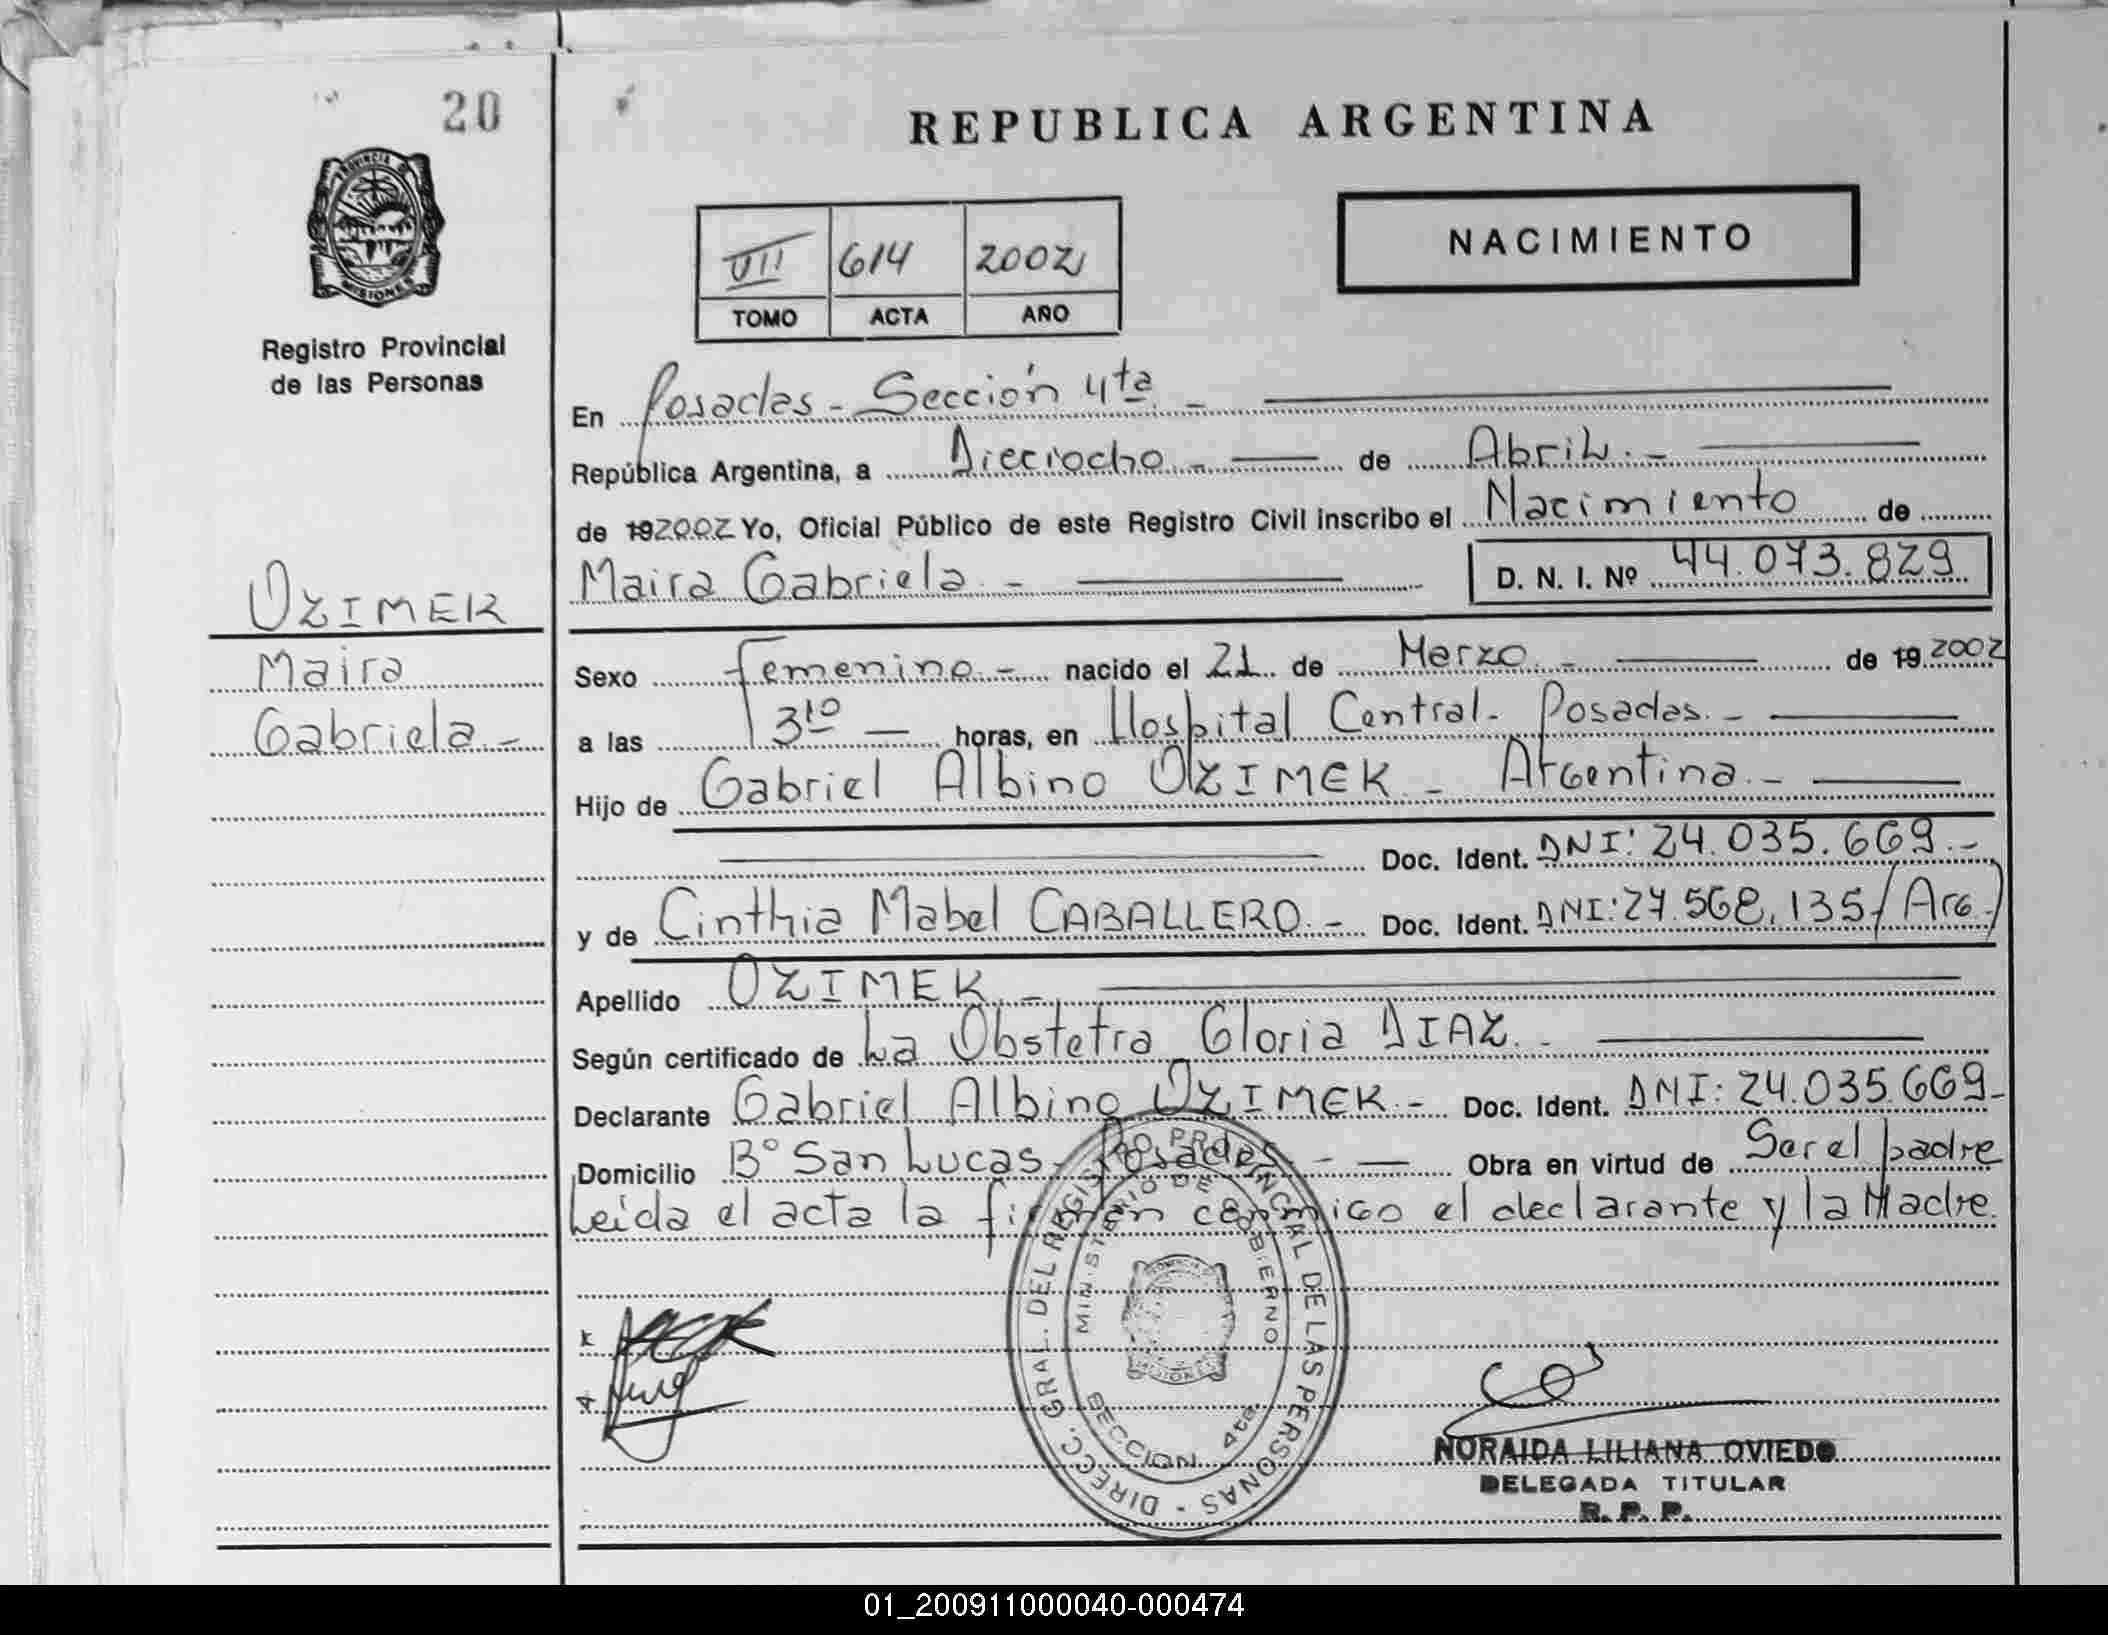 20
REPUBLICA ARGENTINA
PROVINCIA DE
MISIONES
Registro Provincial
de las Personas
VIII 614 2002
TOMO ACTA AÑO
NACIMIENTO
En Posadas - Sección 4ta. -
República Argentina, a Dieciocho - de Abril. -
de 192002 Yo, Oficial Público de este Registro Civil inscribo el Nacimiento de
Maira Gabriela. - D. N. I. Nº 44.073.829
OZIMEK
Maira
Gabriela. -
Sexo Femenino. - nacido el 21 de Marzo. - de 192002
a las 3:10 horas, en Hospital Central - Posadas. -
Hijo de Gabriel Albino OZIMEK - Argentina. -
Doc. Ident. DNI: 24.035.669. -
y de Cinthia Mabel CABALLERO. - Doc. Ident. DNI: 27.568.135/(Arg.)
Apellido OZIMEK. -
Según certificado de La Obstetra Gloria DIAZ. -
Declarante Gabriel Albino OZIMEK. - Doc. Ident. DNI: 24.035.669 -
Domicilio Bº San Lucas - Posadas - - Obra en virtud de Ser el padre
Leida el acta la firman conmigo el declarante y la Madre.
DIRECC. GRAL. DEL REGISTRO PROVINCIAL DE LAS PERSONAS -
MINISTERIO DE GOBIERNO
SECCION 4ta
MISIONES
NORAIDA LILIANA OVIEDO
DELEGADA TITULAR
R. P. P.
01_200911000040-000474